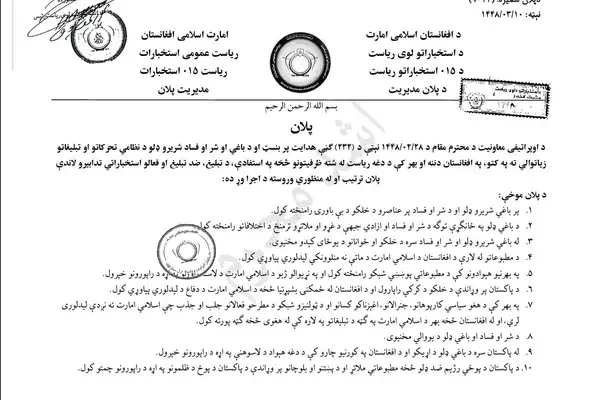 نېټه: ۱۴۴۸/۰۳/۱۰
د افغانستان اسلامی امارت
د استخباراتو لوی ریاست
د ۰۱۵ استخباراتو ریاست
د پلان مدیریت
امارت اسلامی افغانستان
ریاست عمومی استخبارات
ریاست ۰۱۵ استخبارات
مدیریت پلان
بسم الله الرحمن الرحیم
پلان
د اوپراتیفی معاونیت د محترم مقام د ۱۴۴۸/۰۲/۲۸ نېټې د (۲۳۲) ګڼې هدایت پر بنسټ او د باغي او شر او فساد شریرو ډلو د نظامي تحرکاتو او تبلیغاتو
زیاتوالي ته په کتو، په افغانستان دننه او بهر کې د دغه ریاست له شته ظرفیتونو څخه په استفادې، د تبلیغ، ضد تبلیغ او فعالو استخباراتي تدابیرو لاندې
پلان ترتیب او له منظورۍ وروسته د اجرا وړ ده:
د پلان موخې:
۱. پر باغي شریرو ډلو او د شر او فساد پر عناصرو د خلکو د بې باورۍ رامنځته کول.
۲. د باغي ډلو په ځانګړې توګه د شر او فساد او ازادۍ جبهې د غړو او ملاتړو ترمنځ د اختلافاتو رامنځته کول.
۳. د باغي شریرو ډلو او شر او فساد سره د خلکو او ځوانانو د یوځای کېدو مخنیوی.
۴. د مطبوعاتو له لارې د افغانستان د اسلامي امارت د ماتې نه منلوونکې لیدلوري پیاوړي کول.
۵. په بهنیو هېوادونو کې د مطبوعاتي پوښښي شبکو رامنځته کول او په نړیوالو ژبو د اسلامي امارت د لاست په اړه د راپورونو خپرول.
۶. د پاکستان پر وړاندې د خلکو د کرکې راپارول او د افغانستان له ځمکنۍ بشپړتیا څخه د اسلامي امارت د دفاع د لیدلوري پیاوړي کول.
۷. په بهر کې د هغو سیاسي کارپوهانو، جنرالانو، اغېزناکو کسانو او ټولنیزو شبکو د مطرحو فعالانو جلب او جذب چې اسلامي امارت ته نږدې لیدلوری
لري، او له افغانستان څخه بهر د اسلامي امارت په ګټه د تبلیغاتو په لاره کې له هغوی څخه ګټه پورته کول.
۸. د شر او فساد او باغي ډلو د یووالي مخنیوی.
۹. له پاکستان سره د باغي ډلو د اړیکو او د افغانستان په کورنیو چارو کې د دغه هېواد د لاسوهنې په اړه د راپورونو خپرول.
۱۰. د پاکستان د پوځي رژیم ضد ډلو څخه مطبوعاتي ملاتړ او د پښتنو او بلوچانو پر وړاندې د پاکستان د پوځ د ظلمونو په اړه د راپورونو چمتو کول.